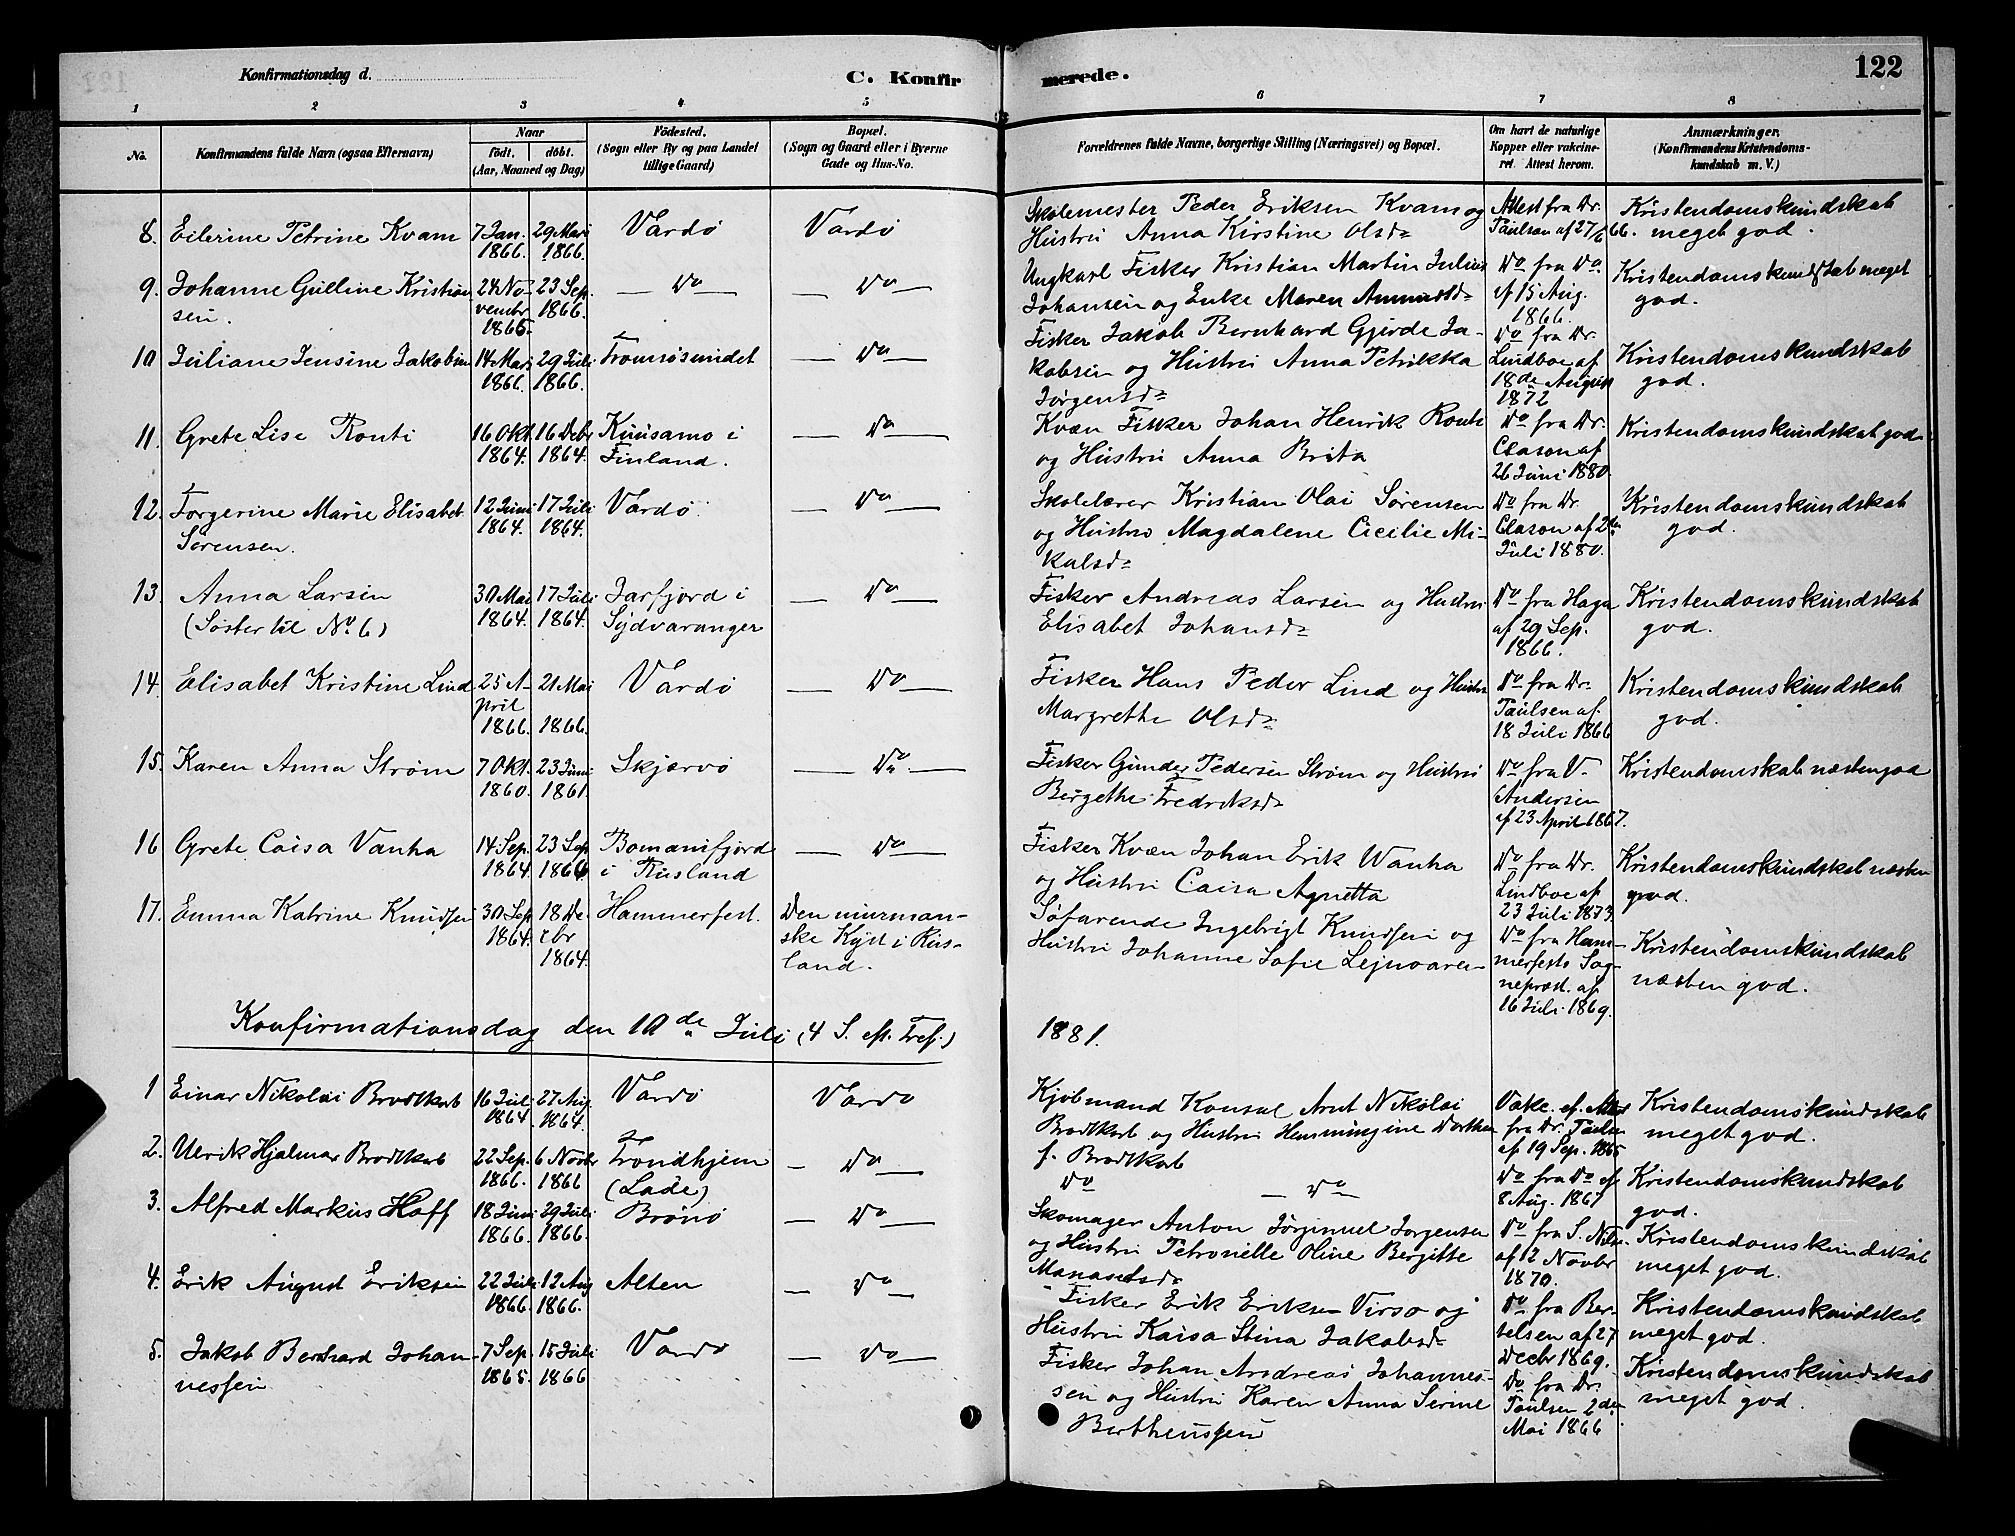 Konfirmationsdag d. C. Konfirmerede. 122
1 2 3 4 5 6 7 8
No. Konfirmandens fulde Navn (ogsaa Efternavn) Naar født. døbt. (Aar, Maaned og Dag) Fødested. (Sogn eller By og paa Landet tillige Gaard) Bopæl. (Sogn og Gaard eller i Byerne Gade og Hus-No. Forældrenes fulde Navne, borgerlige Stilling (Næringsvei) og Bopæl. Om havt de naturlige Kopper eller vaccineret. Attest herom. Anmærkninger. (Konfirmandens Kristendomskundskab m. V.)
8. Eilerine Petrine Kvam 7 Jan. 1866. 29 Mari 1866. Vardø Vardø Skolemester Peder Eriksen Kvam og
Hustru Anna Kirstine Olsd= Attest fra Dr. Paulsen af 27/6 66. Kristendomskundskab meget god.
9. Johanne Gulline Kristiansen. 24 November 1865. 23 Sep. 1866. — Do — — Do — Ungkarl Fisker Kristian Martin Julius
Johansen og Enke Maren Amundsd= Do fra Do af 15 Aug. 1866. Kristendomskundskab meget god.
10 Juliane Jensine Jakobsen 14 Mars 1866. 29 Juli 1866. Tromsøsundet — Do — Fisker Jakob Bernhard Gjerde Ja-
kobsen og Hustru Anna Petrikka
Jørgensd= Do fra Dr. Lindboe af 18de August 1872 Kristendomskundskab god.
11. Grete Lise Ronti 16 Okt. 1864. 16 Debr 1864. Kuusamo i Finland. — Do — Kvæn Fisker Johan Henrik Ronti
og Hustru Anna Brita Do fra Dr. Clason af 26 Juni 1880. Kristendomskundskab god
12. Torgerine Marie Elisabet Sørensen. 12 Juni 1864. 17 Juli 1864. Vardø. — Do — Skolelærer Kristian Olai Sørensen
og Hustru Magdalene Cicilie Mi-
kalsd= Do fra Dr. Clason af 2de Juli 1880. Kristendomskundskab god.
13. Anna Larsen (Søster til No. 6) 30 Mai 1864. 17 Juli 1864. Jarfjord i Sydvaranger — Do — Fisker Andreas Larsen og Hustru
Elisabet Johansd= Do fra Haga af 29 Sep. 1866. Kristendomskundskab god.
14. Elisabet Kristine Lind 25 April 1866. 21 Mai 1866. Vardø — Do — Fisker Hans Peder Lind og Hustru
Margrethe Olsd= Do fra Dr. Paulsen af. 18 Juli 1866 Kristendomskundskab god.
15. Karen Anna Strøm 7 Okt. 1860. 23 Juni 1861. Skjærvø — Do — Fisker Gunder Pedersen Strøm og Hustru
Bergethe Fredriksd= Do fra V. Andersen af 23 April 1867. Kristendomskab næsten god
16 Grete Caisa Vanha 14 Sep. 1864. 23 Sep 1864 Bomanifjord i Rusland — Do — Fisker Kvæn Johan Erik Wanha
og Hustru Caisa Agnetta Do fra Dr. Lindboe af 23 Juli 1873. Kristendomskundskab næsten god.
17. Emma Katrine Knudsen 30 Sep 1864. 18 Decbr 1864. Hammerfest. Den murmanske Kyst i Rusland. Søfarende Ingebrigt Knudsen og
Hustru Johanne Sofie Do fra Hammerfests Sognepræst. af 16 Juli 1869. Kristendomskundskab næsten god.
Konfirmationsdag den 10de Juli (4 S. eft. Tref.) 1881.
1 Einar Nikolai Brodtkorb 16 Juli 1864. 27 Aug. 1864. Vardø Vardø Kjøbmand Konsul Arnt Nikolai
Brodtkorb og Hustru Hemmingine Dorthea
f. Brodtkorb Vakc. ef. Attest fra Dr. Paulsen af 19 Sep. 1865 Kristendomskundskab meget god.
2. Ulrik Hjalmar Brodtkorb 22 Sep. 1866. 6 Novbr 1866 Trondhjem (Lade) — Do — Do — Do — Do fra Do af 8 Aug. 1867 Kristendomskundskab god.
3. Alfred Markus Hoff 18 Juni 1866. 29 Juli 1866. Brønø — Do — Skomager Anton Jørginuel Jørgensen
og Hustru Petronelle Oline Bergitte
Manasesd= Do fra S. Nils. af 12 Novbr 1870. Kristendomskundskab meget god.
4. Erik August Eriksen 22 Juli 1866. 12 Aug 1866. Alten — Do — Fisker Erik Eriksen Virso og
Hustru Kaisa Stina Jakobsd= Do fra Bertelsen af 27 Decbr 1869. Kristendomskundskab meget god.
5. Jakob Bernhard Johannessen 7 Sep. 1865. 15 Juli 1866 Vardø — Do — Fisker Johan Andreas Johannes-
sen og Hustru Karen Anna Serine
Bertheussen Do fra Dr. Paulsen 2den Mai 1866 Kristendomskundskab meget god.